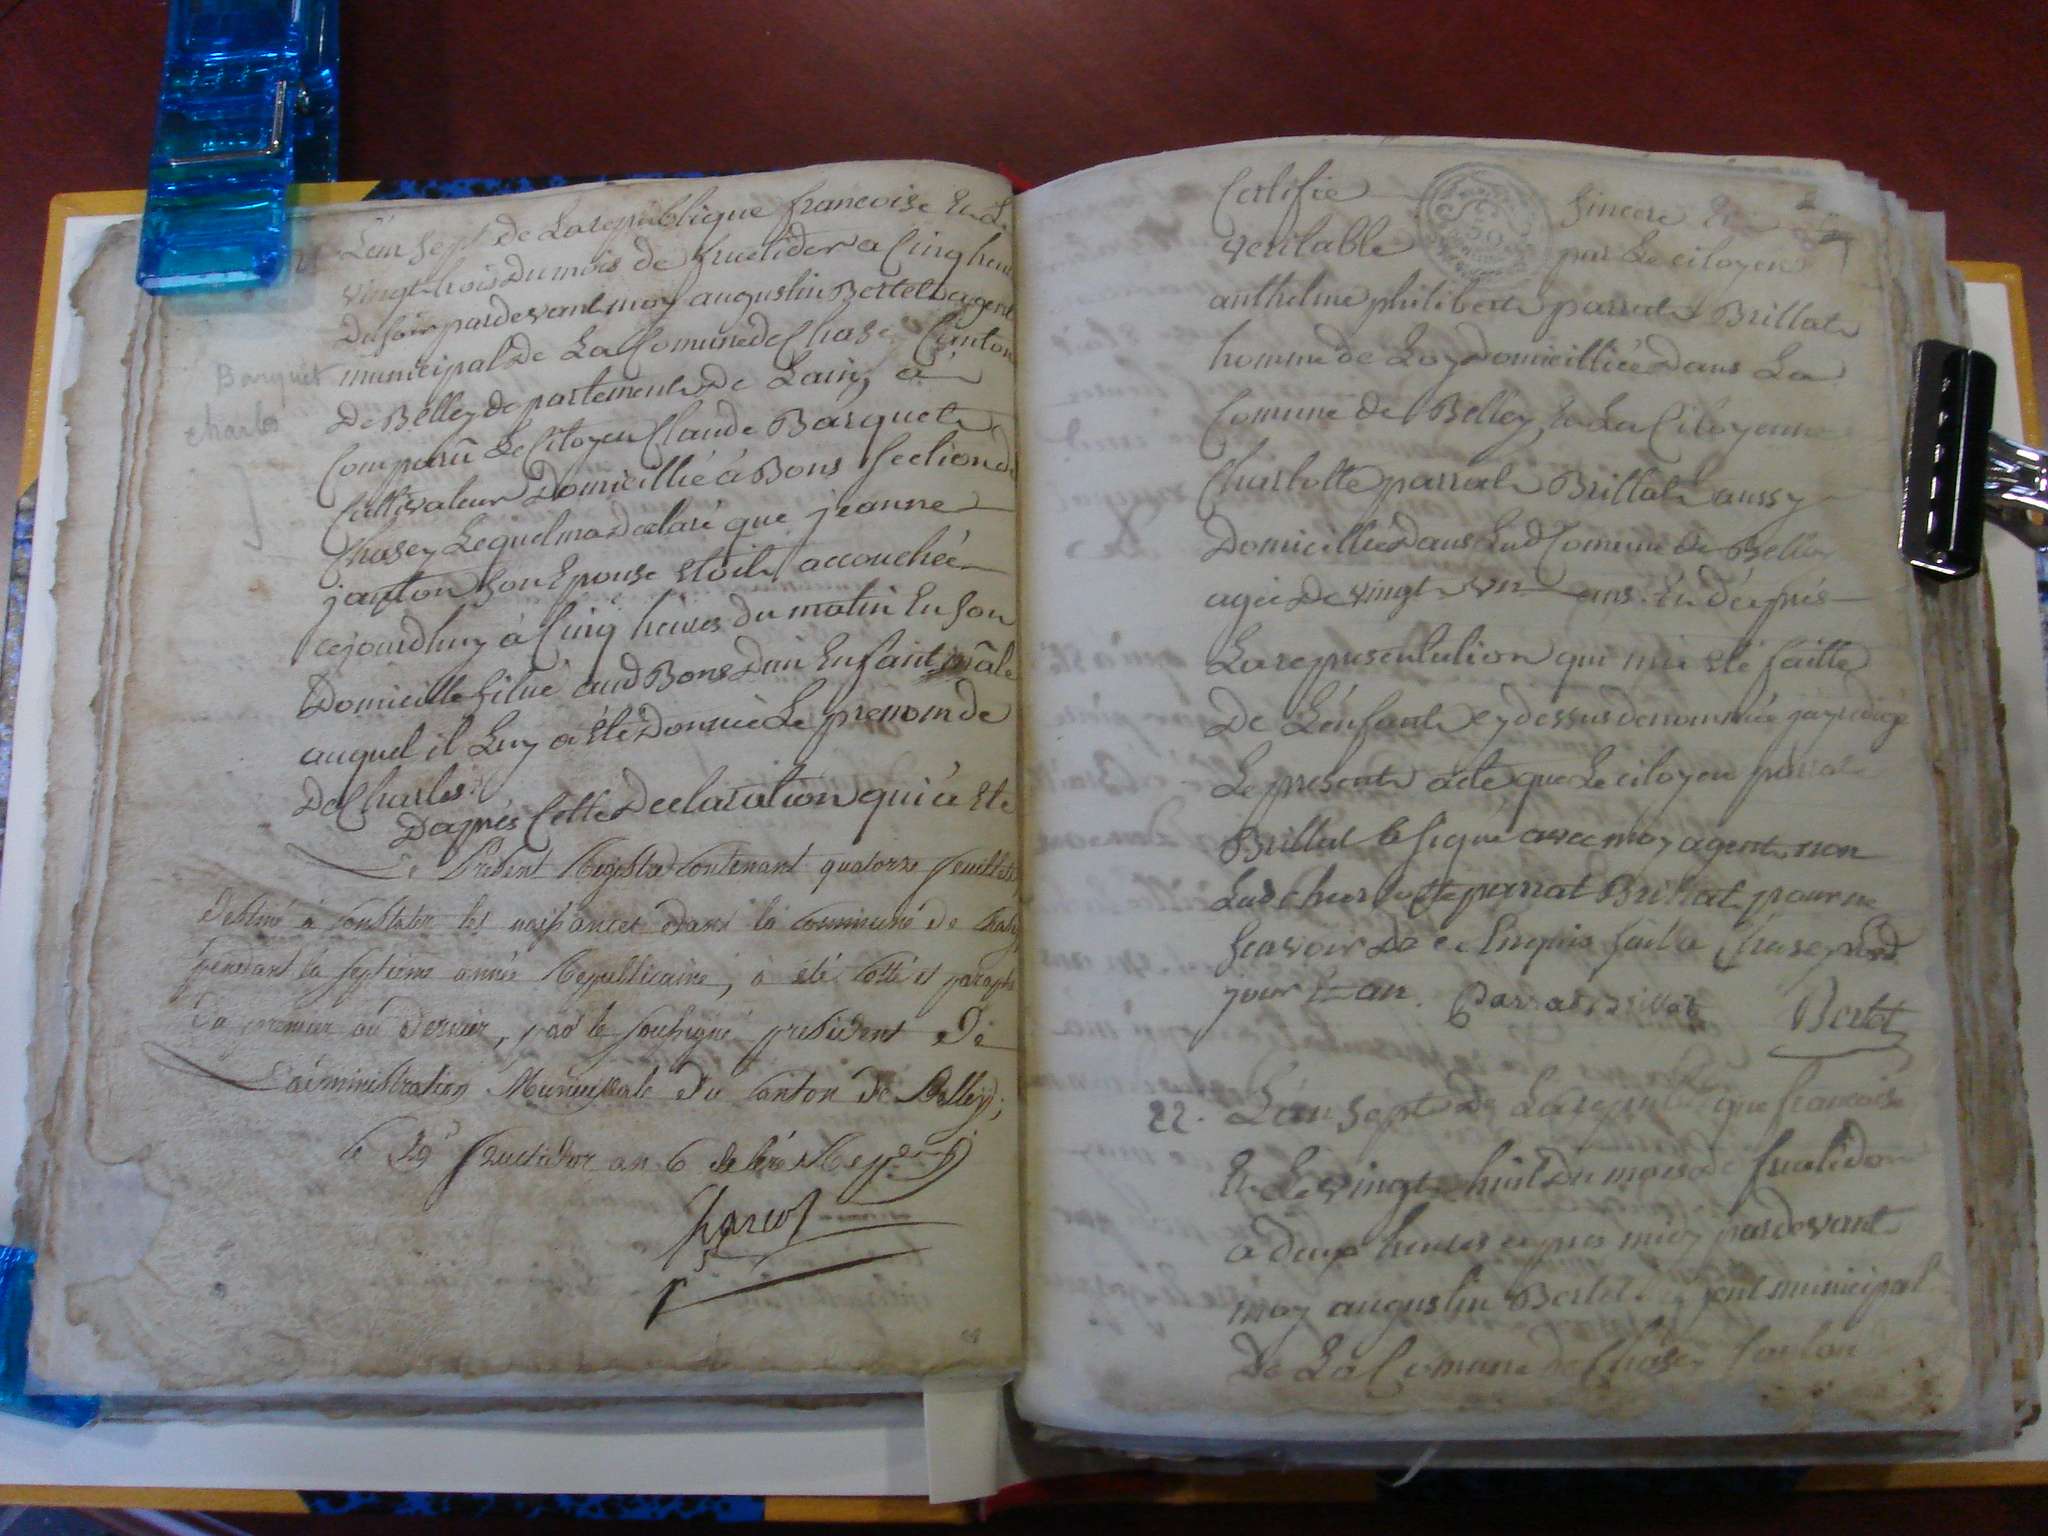 L'an sept de La republique francoise Et Le
vingt trois du mois de fructidor a Cinq heures
Du soir pardevant moy augustin Bertet agent
municipal De La Comune de Chasey Canton
De Belley departement De Lain, a
Comparu Le Citoyen Claude Barquet
Cultivateur Domicillié à Bons section de
Chasey Lequel ma declaré que jeanne
janton son Epouse Etoit accouchée
cejourdhuy à Cinq heures du matin En son
Domicille situé aud Bons D'un Enfant mâle
auquel il Luy a été Donnée Le prenom de
De Charles.
D'après Cette Declaration qui a Eté
Barquet
charles
Le Présent Registre Contenant quatorze feuillets
Destiné à Constater les naissances dans la Commune de Chasey
pendant la septième année Republicaine, a été Cotté et paraphé
Du premier au Dernier, par le soussigné président De
L'administration Municipale du Canton de Belley;
le 29 fructidor an 6 de l'ère Rep.
Certifie sincere Et
veritable par Le citoyen
anthelme philibert parrat Brillat
homme de Loy Domicilliée Dans La
Comune de Belley, Et La Citoyenne
Charlotte parrat Brillat aussy
Domicilliée Dans Lad Comune de Belley
agée De vingt un ans. Et D'après
La representation qui m'a été faitte
De L'enfant cydessus denommée jay redigé
Le present acte que Le citoyen parrat
Brillat a signé avec moy agent non
Lad charlotte parrat Brillat pour ne
scavoir De ce Enquis fait a Chasey led
jour Et an. Parrat Brillat Bertet
22. L'an sept De La republique francoise
Et Le vingt huit Du mois de fructidor
a deux heures après midy pardevant
moy augustin Bertet agent municipal
De La Comune de Chasey Canton